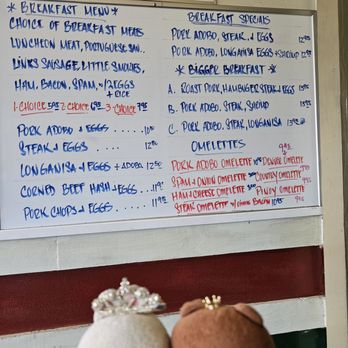 * BREAKFAST MENU *
CHOICE OF BREAKFAST MEATS
LUNCHEON MEAT, PORTUGUESE SAU..
LINKS SAUSAGE, LITTLE SMOKIES,
HAM, BACON, SPAM, w/2 EGGS
+ RICE
1-CHOICE 2 CHOICE 3-CHOICE
PORK ADOBO + EGGS
STEAK + EGGS 12
LONGANISA + EGGS + ADOBO 12
CORNED BEEF HASH + EGGS 11
PORK CHOPS + EGGS 11
BREAKFAST SPECIALS
PORK ADOBO, STEAK, + EGGS
PORK ADOBO, LONGANISA EGGS + SHOYU
* BIGGER BREAKFAST *
A. ROAST PORK, HAMBURGER STEAK + EGGS
B. PORK ADOBO, STEAK,
C. PORK ADOBO, STEAK, LONGANISA
OMELETTES
PORK ADOBO OMELETTE DENVER OMELETTE
SPAM + ONION OMELETTE COUNTRY OMELETTE
HAM + CHEESE OMELETTE PINOY OMELETTE
STEAK OMELETTE BACON